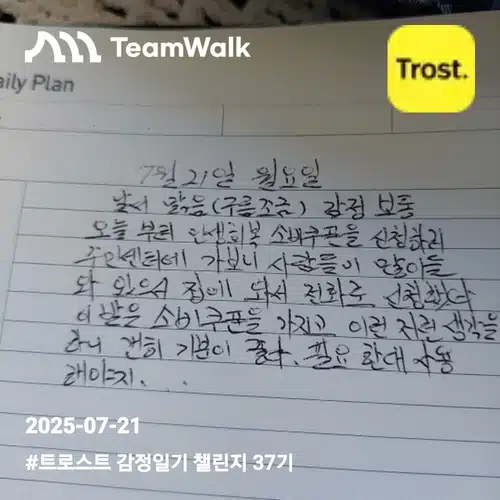 TeamWalk
Trost.
aily Plan
7월 21일 월요일
날씨 맑음(구름조금) 감정 보통
오늘 부터 민생회복 소비쿠폰을 신청하러
주민센터에 가보니 사람들이 많이들
와 있으서 집에 와서 전화로 신청했다
이 받은 소비쿠폰을 가지고 이런 저런 생각을
하니 괜히 기분이 좋다. 필요 한데 사용
해야지. . .
2025-07-21
#트로스트 감정일기 챌린지 37기